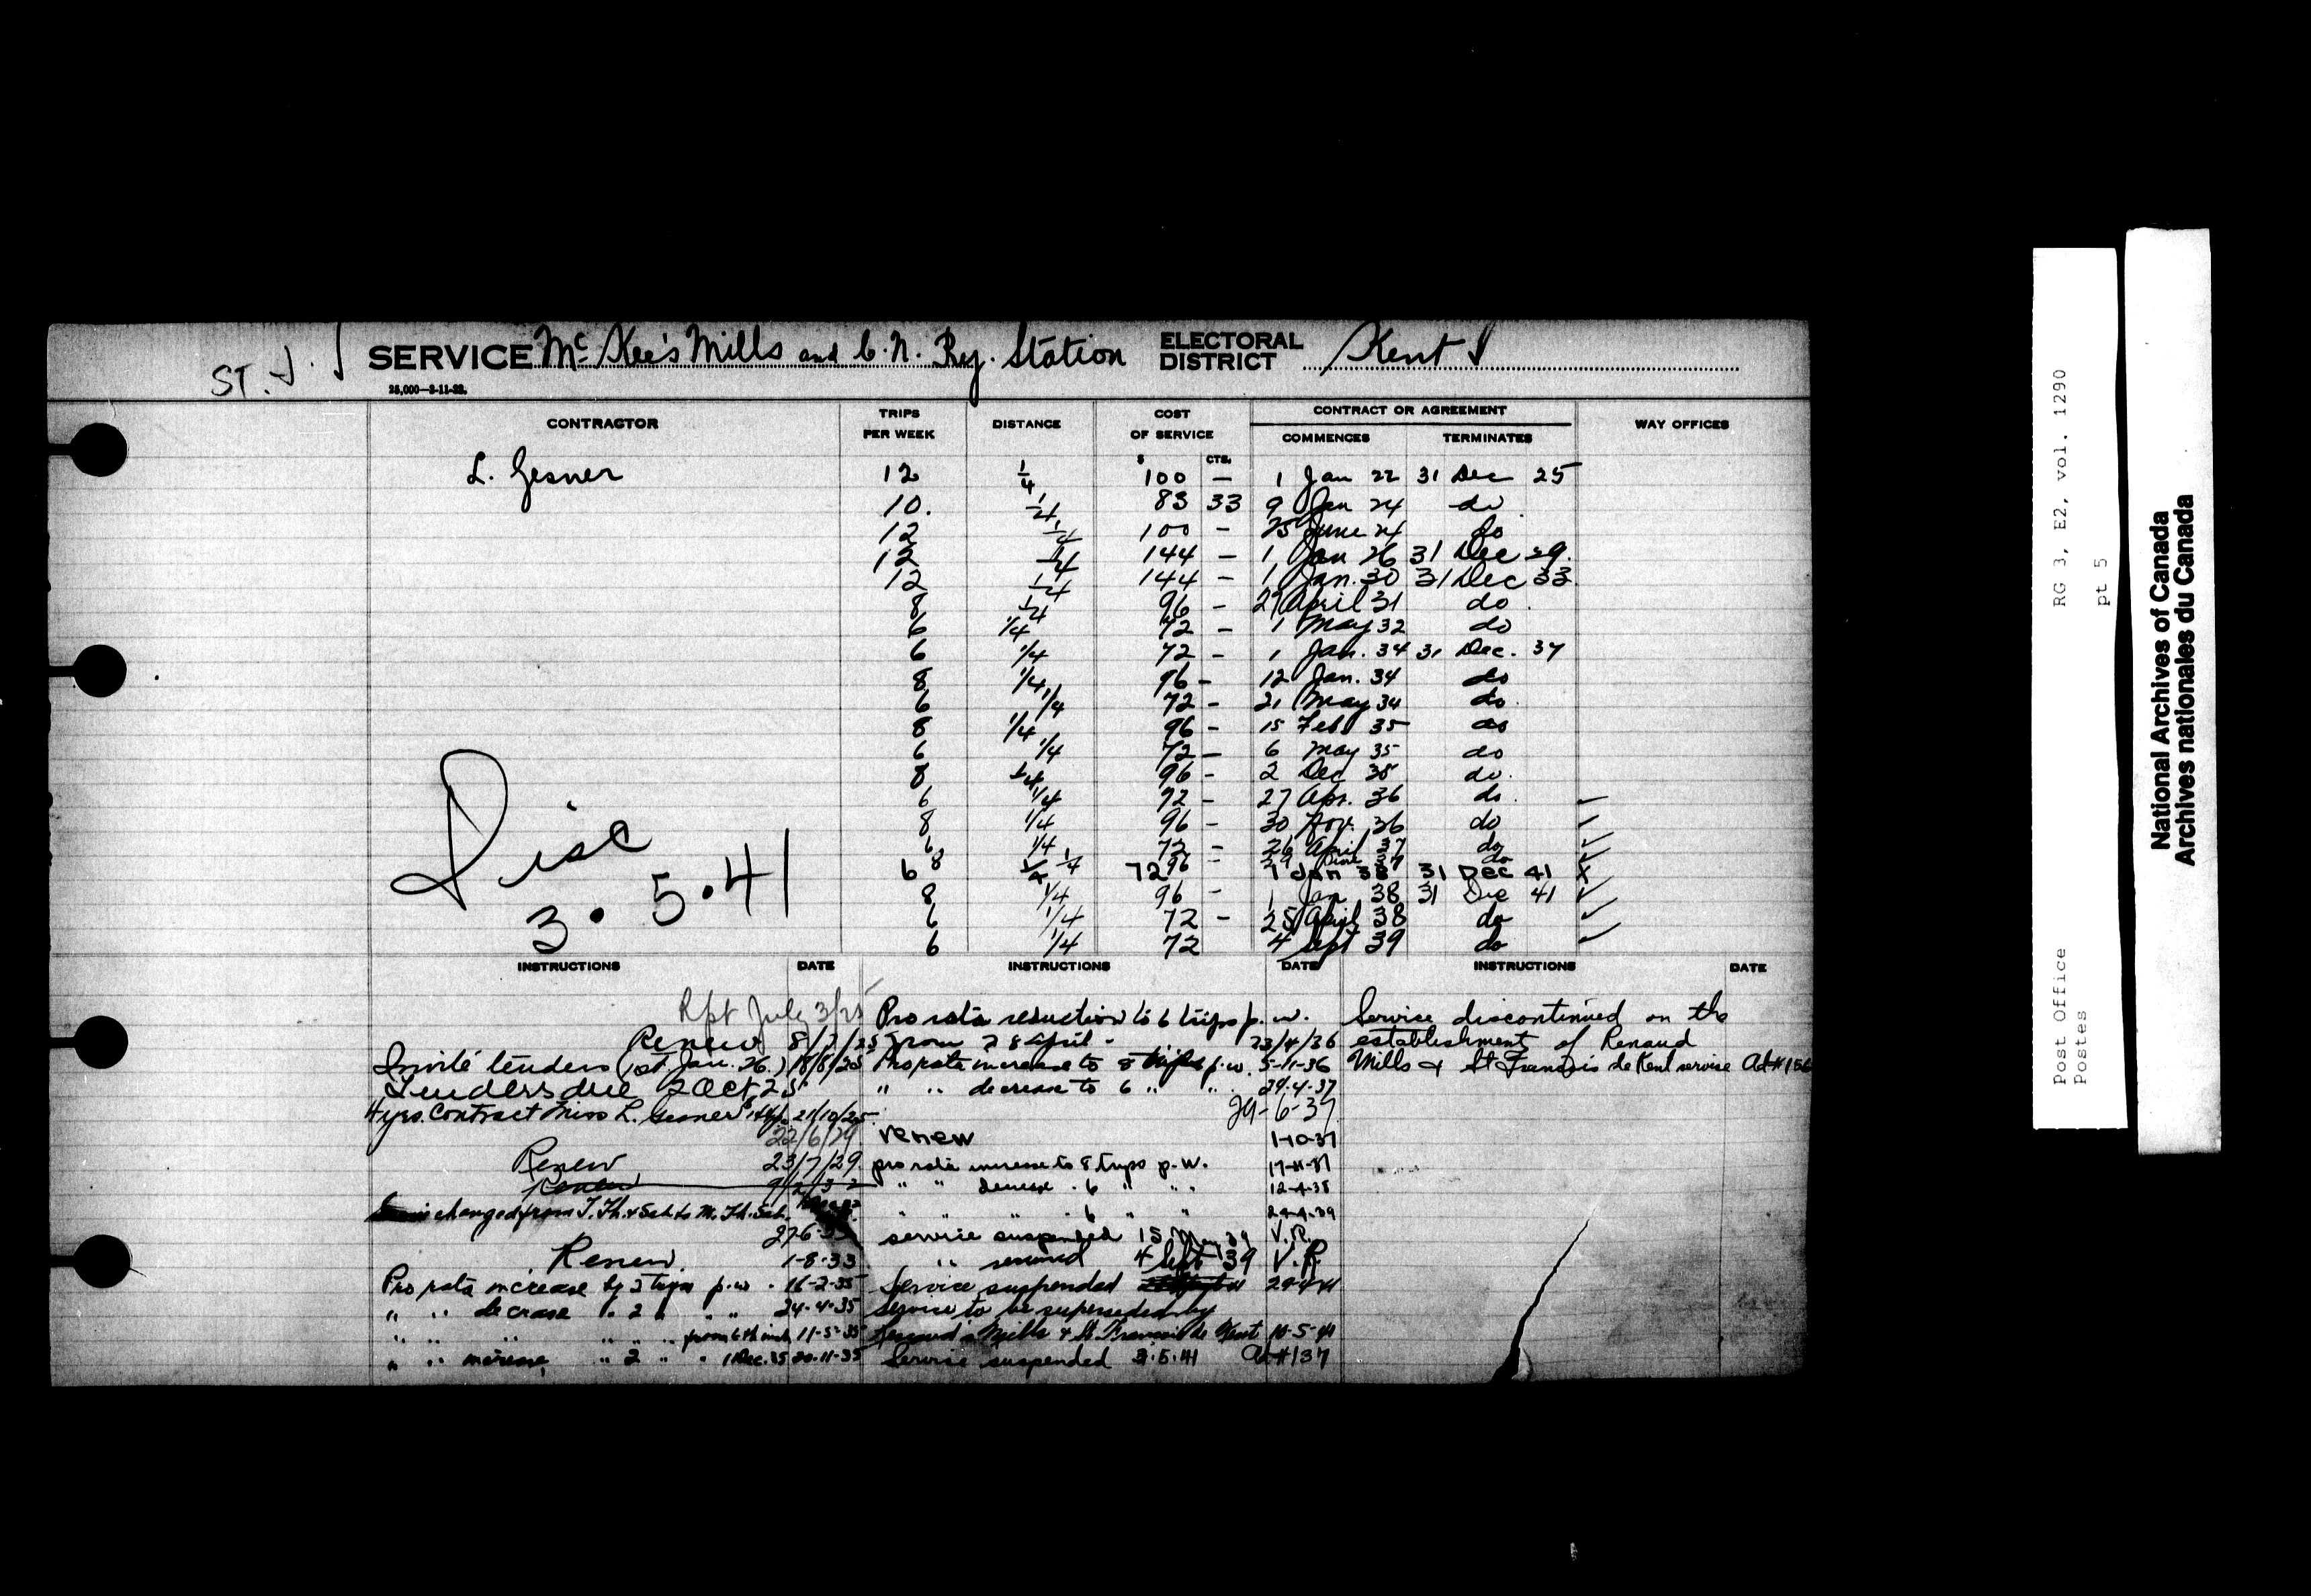 ST. J. SERVICE Mc Kee's Mills and C. N. Ry. Station ELECTORAL DISTRICT Kent
25,000—3-11-22.
CONTRACTOR TRIPS PER WEEK DISTANCE COST OF SERVICE CONTRACT OR AGREEMENT COMMENCES TERMINATES WAY OFFICES
$ CTS.
L. Gesner 12 1/4 100 — 1 Jan 22 31 Dec 25
10. 1/4 83 33 9 Jan 24 do
12 1/4 100 - 25 June 24 do
12 1/4 144 - 1 Jan 26 31 Dec 29.
12 1/4 144 - 1 Jan. 30 31 Dec 33
8 1/4 96 - 27 April 31 do
6 1/4 72 - 1 May 32 do
6 1/4 72 - 1 Jan. 34 31 Dec. 37
8 1/4 96 - 12 Jan. 34 do
6 1/4 72 - 21 May 34 do
8 1/4 96 - 15 Feb 35 do
6 1/4 72 - 6 May 35 do
8 1/4 96 - 2 Dec 35 do.
6 1/4 72 - 27 Apr. 36 do.
8 1/4 96 - 30 Nov. 36 do
6 1/4 72 - 26 April 37 do
8 1/4 96 - 29 June 37 do
6 1/4 72 1 Jan 38 31 Dec 41 x
8 1/4 96 - 1 Jan 38 31 Dec 41
6 1/4 72 - 25 April 38 do
6 1/4 72 4 Sept 39 do
Disc
3.5.41
INSTRUCTIONS DATE INSTRUCTIONS DATE INSTRUCTIONS DATE
Rpt July 3/25
Renew 8/7/25
Invite tenders (1st Jan. 26.) 18/8/25
Tenders due 2 Oct 25
4 yrs. Contract Miss L. Gesner $144 p. 21/10/25
22/6/29
Renew 23/7/29
Renew 9/2/32
changed from T. Th. & Sat. to M. Th. Sat.
27-6-33
Renew. 1-8-33
Pro rata increase by 2 trips p.w. 16-2-35
" " decrease " 2 " " 24-4-35
" " " " " from 6th inst 11-5-35
" " increase " 2 " " 1 Dec. 35 20-11-35
Pro rata reduction to 6 trips p. w.
from 28 April - 23/4/36
Pro rata increase to 8 trips p.w. 5-11-36
" " decrease to 6 " " 29-4-37
29-6-37
renew 1-10-37
pro rata increase to 8 trips p.w. 17-11-37
" " decrease " 6 " " 12-4-38
" " " 6 " " 24-4-39
service suspended 15 May 39 V.R.
" resumed 4 Sept 39 V.R.
Service suspended 29-4-41
Service to be superseded by
Renaud's Mills & St. Francois de Kent 10-5-41
Service suspended 3.5.41 Ad #137
Service discontinued on the
establishment of Renaud
Mills & St Francois de Kent service Ad #156
Post Office RG 3, E2, vol. 1290
Postes pt 5
National Archives of Canada
Archives nationales du Canada